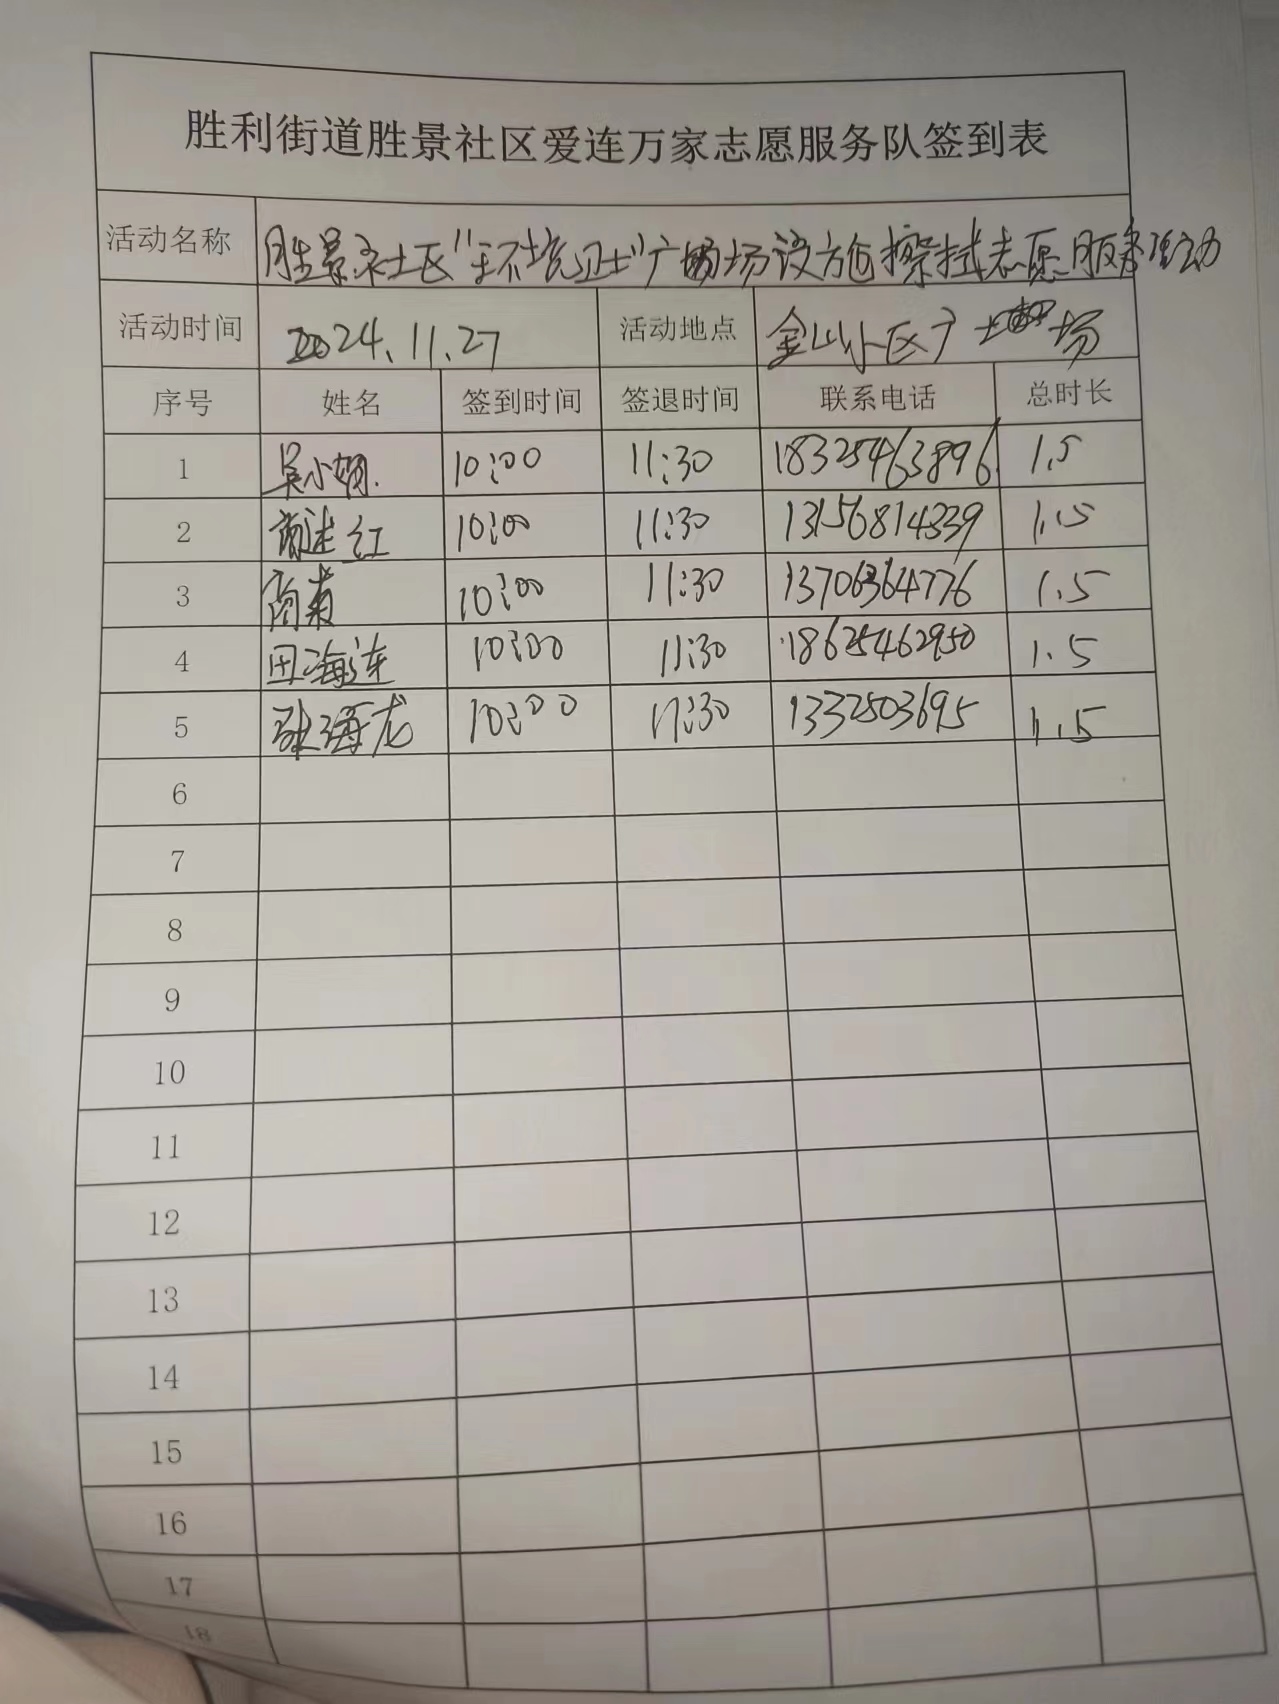 胜利街道胜景社区爱连万家志愿服务队签到表
活动名称 胜景社区"环境卫士"广场设施擦拭志愿服务活动
活动时间 2024.11.27 活动地点 金山小区广场
序号 姓名 签到时间 签退时间 联系电话 总时长
1 吴小娟 10:00 11:30 18325463896 1.5
2 红 10:00 11:30 13156814339 1.5
3 商 10:00 11:30 13706364776 1.5
4 田海连 10:00 11:30 18625462950 1.5
5 张海龙 10:00 11:30 1332503695 1.5
6
7
8
9
10
11
12
13
14
15
16
17
18